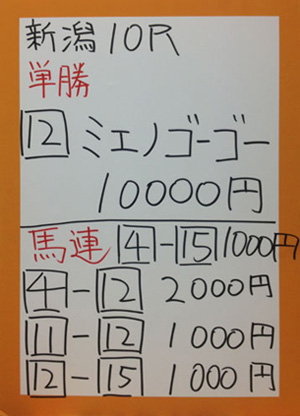 新潟10R
単勝
12 ミエノゴーゴー
10000円
馬連 4-15 1000円
4-12 2000円
11-12 1000円
12-15 1000円